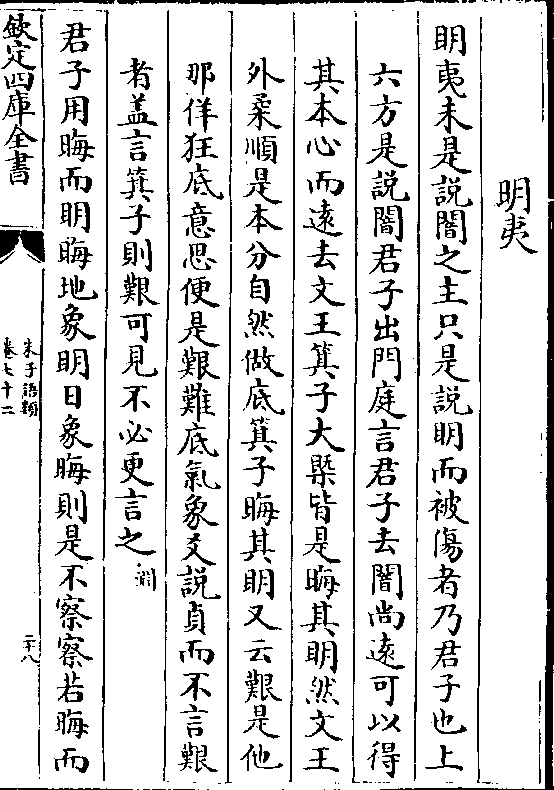 明夷
明夷未是説闇之主只是説明而被傷者乃君子也上
六方是説闇君子出門庭言君子去闇尚遠可以得
其本心而遠去文王箕子大槩皆是晦其明然文王
外柔順是本分自然做底箕子晦其明又云艱是他
那佯狂底意思便是艱難底氣象爻説貞而不言艱
者盖言箕子則艱可見不必更言之 淵
君子用晦而明晦地象明日象晦則是不察察若晦而
欽定四庫全書
朱子語類
卷七十二
二十八